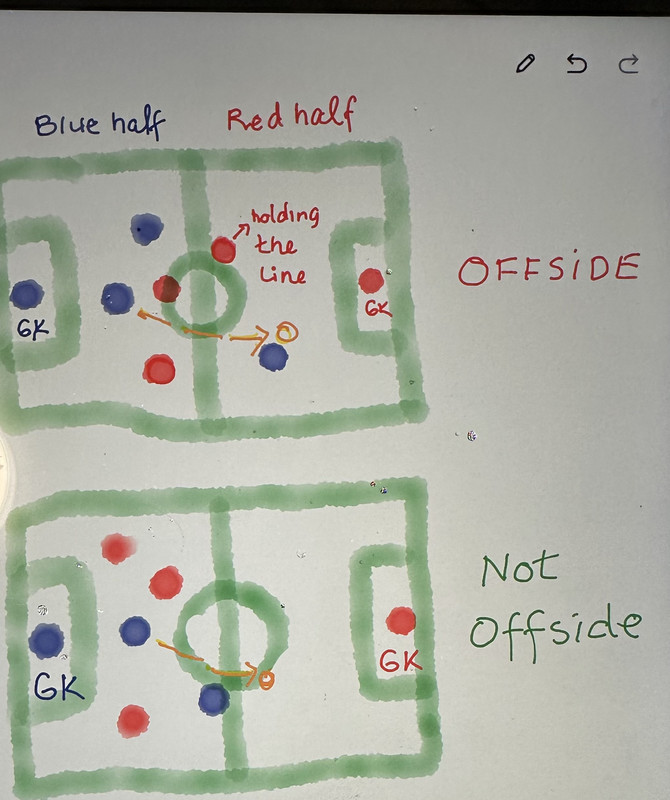 Blue half
Red half
holding
the
Line
GK
GK
OFFSiDE
GK
GK
Not
Offside